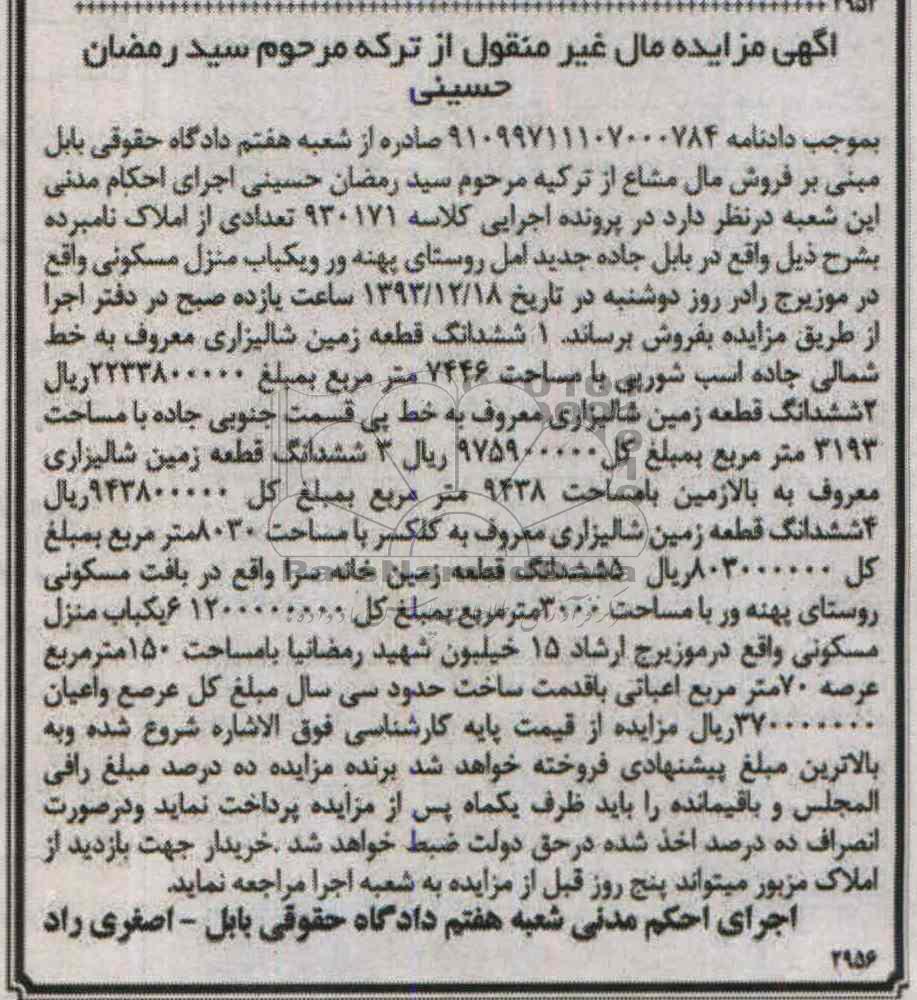 ۲۹۵۲
آگهی مزایده مال غیر منقول از ترکه مرحوم سید رمضان
حسینی
بموجب دادنامه ۹۱۰۹۹۷۱۱۱۰۷۰۰۰۷۸۴ صادره از شعبه هفتم دادگاه حقوقی بابل
مبنی بر فروش مال مشاع از ترکیه مرحوم سید رمضان حسینی اجرای احکام مدنی
این شعبه درنظر دارد در پرونده اجرایی کلاسه ۹۳۰۱۷۱ تعدادی از املاک نامبرده
بشرح ذیل واقع در بابل جاده جدید امل روستای پهنه ور ویکباب منزل مسکونی واقع
در موزیرج رادر روز دوشنبه در تاریخ ۱۳۹۳/۱۲/۱۸ ساعت یازده صبح در دفتر اجرا
از طریق مزایده بفروش برساند. ۱ ششدانگ قطعه زمین شالیزاری معروف به خط
شمالی جاده اسب شورپی با مساحت ۷۴۴۶ متر مربع بمبلغ ۲۲۳۳۸۰۰۰۰۰ریال
۲ششدانگ قطعه زمین شالیزاری معروف به خط پی قسمت جنوبی جاده با مساحت
۳۱۹۳ متر مربع بمبلغ کل۹۷۵۹۰۰۰۰۰ ریال ۳ ششدانگ قطعه زمین شالیزاری
معروف به بالازمین بامساحت ۹۴۳۸ متر مربع بمبلغ کل ۹۴۳۸۰۰۰۰۰ریال
۴ششدانگ قطعه زمین شالیزاری معروف به کلکسر با مساحت ۸۰۳۰متر مربع بمبلغ
کل ۸۰۳۰۰۰۰۰۰ریال ۵ششدانگ قطعه زمین خانه سرا واقع در بافت مسکونی
روستای پهنه ور با مساحت ۳۰۰۰مترمربع بمبلغ کل ۱۲۰۰۰۰۰۰۰۰ ۶یکباب منزل
مسکونی واقع درموزیرج ارشاد ۱۵ خیلبون شهید رمضانیا بامساحت ۱۵۰مترمربع
عرصه ۷۰متر مربع اعیانی باقدمت ساخت حدود سی سال مبلغ کل عرصع واعیان
۳۷۰۰۰۰۰۰۰ریال مزایده از قیمت پایه کارشناسی فوق الاشاره شروع شده وبه
بالاترین مبلغ پیشنهادی فروخته خواهد شد برنده مزایده ده درصد مبلغ رافی
المجلس و باقیمانده را باید ظرف یکماه پس از مزایده پرداخت نماید ودرصورت
انصراف ده درصد اخذ شده درحق دولت ضبط خواهد شد .خریدار جهت بازدید از
املاک مزبور میتواند پنج روز قبل از مزایده به شعبه اجرا مراجعه نماید.
اجرای احکم مدنی شعبه هفتم دادگاه حقوقی بابل - اصغری راد
۲۹۵۶